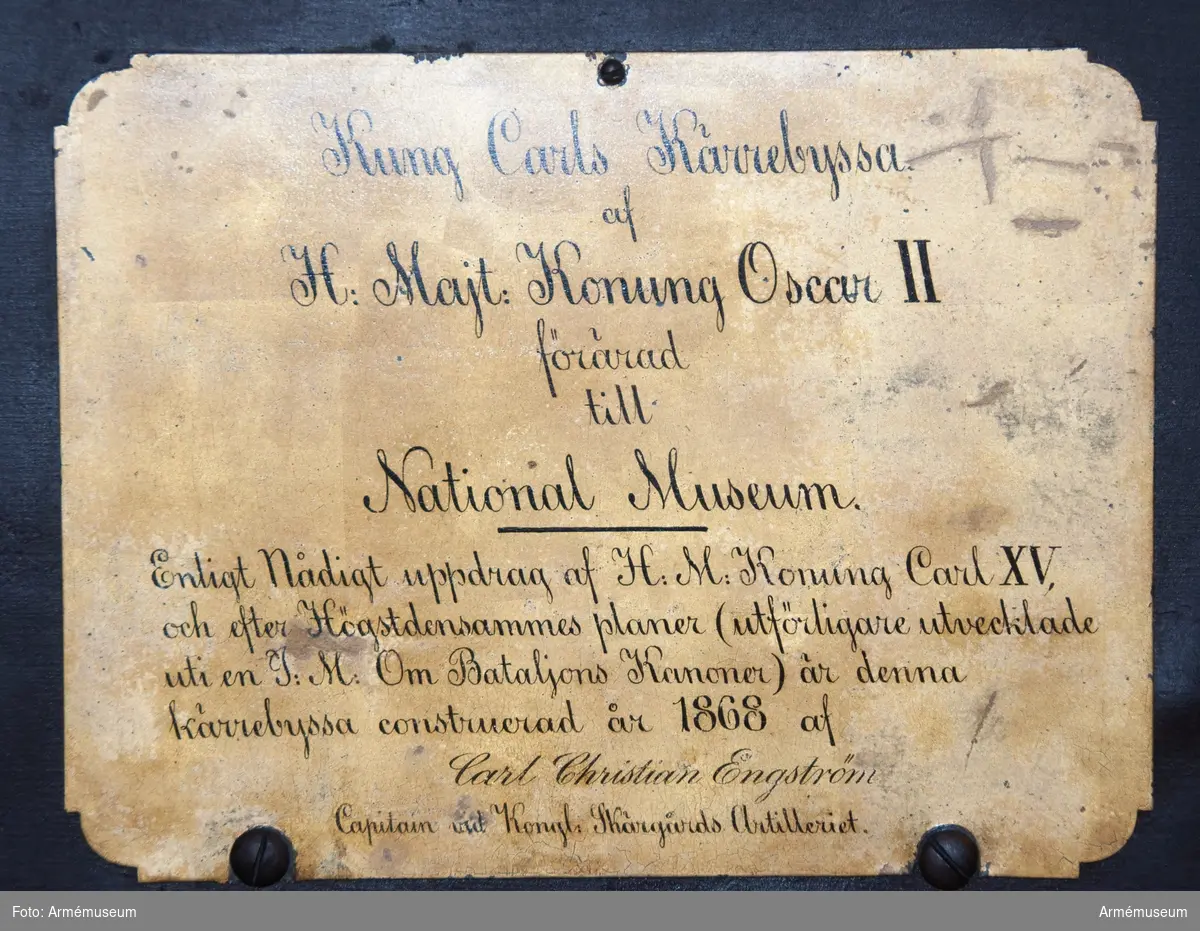 Kung Carls Kärrebyssa.
af
H: Majt: Konung Oscar II
förärad
till
National Museum.
Enligt Nådigt uppdrag af H: M: Konung Carl XV,
och efter Högstdensammes planer (utförligare utvecklade
uti en I: M: Om Bataljons Kanoner) är denna
kärrebyssa construerad år 1868 af
Carl Christian Engström
Capitain vid Kongl: Skärgårds Artilleriet.
Foto: Armémuseum
Armémuseum